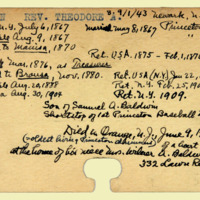 N REV. THEODORE A. 2/1/43 Newark, N.
N.Y. July 6, 1867 married may 8, 1867 Princeton
Aug. 9, 1867
to Manisa, 1870
Ret. U.S.A. 1875 - Feb. 1, 187
Mar. 1876, as
to Brousa, Nov. 1880. Ret. U.S.A (N.Y.) Jan 22,
Aug. 20, 188 Ret. N.Y. Feb. 25, 190
Aug. 30, 1904 Ret. N.Y. 1909.
Son of Samuel A. Baldwin
Shortstop of 1st Princeton Baseball
Died in Orange, N.J., June 9,
(oldest living Princeton alumnus) of a heart
at the home of his niece Mrs. Wilmer A. Baldwin
332 Lawn R